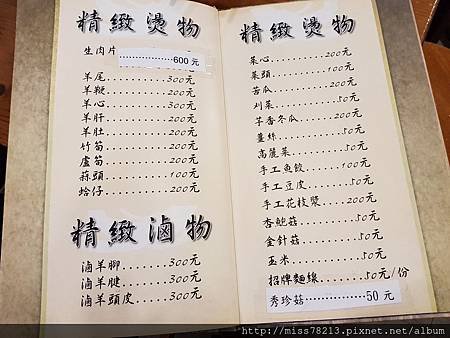 精緻燙物
生肉片
..................600 元
羊尾..........300元
羊鞭..........200元
羊心..........300元
羊肝..........200元
羊肚..........200元
竹筍..........200元
蘆筍..........200元
蒜頭..........100元
蛤仔..........200元
精緻滷物
滷羊腳........300元
滷羊腱........300元
滷羊頭皮......300元
精緻燙物
菜心..........200元
菜頭..........100元
苦瓜..........200元
刈菜..........50元
芋香冬瓜......200元
薑絲..........50元
高麗菜........50元
手工魚餃......100元
手工豆皮......50元
手工花枝漿....200元
杏鮑菇........50元
金針菇........50元
玉米..........50元
招牌麵線......50元/份
秀珍菇...............50 元
http://miss78213.pixnet.net/album